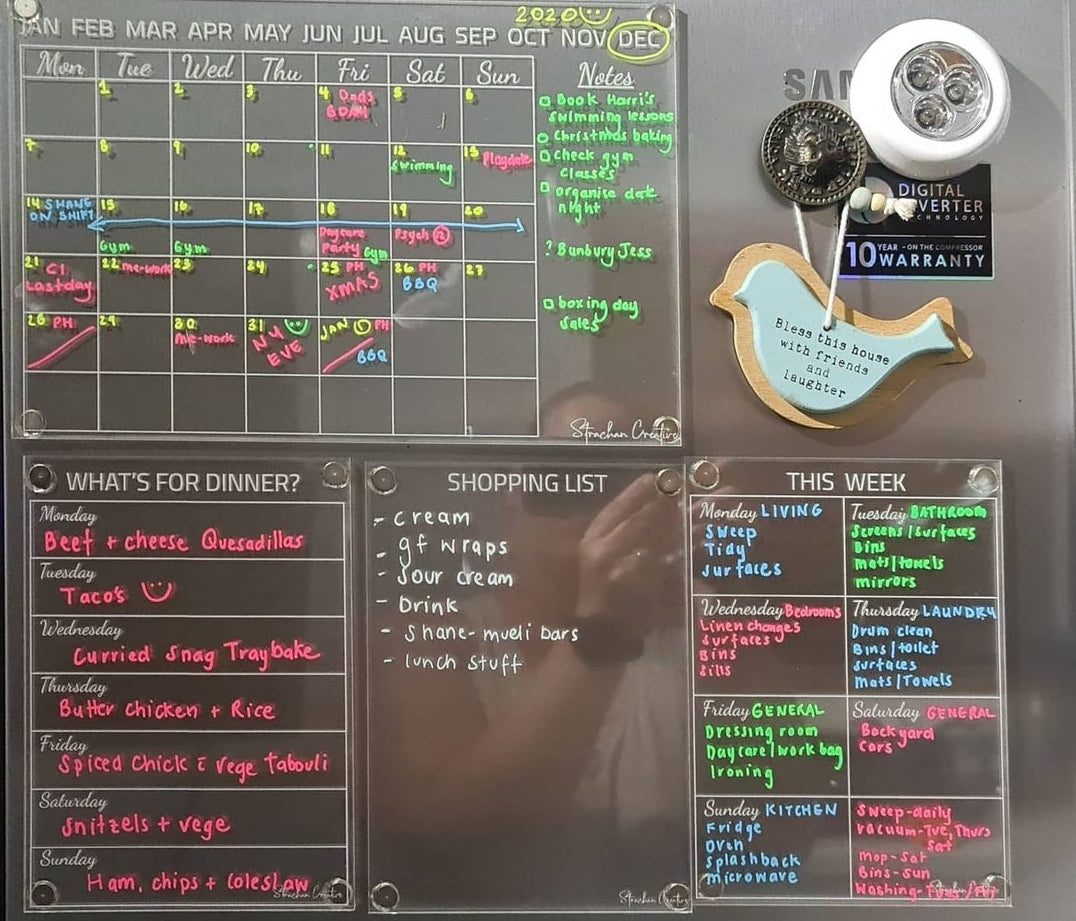 2020
JAN FEB MAR APR MAY JUN JUL AUG SEP OCT NOV DEC
Mon Tue Wed Thu Fri Sat Sun
1 2 3 4 Dads 5 6
BDAY
7 8 9 10 11 12 13 Playdate
Swimming
14 SHANE 15 16 17 18 19 20
ON SHIFT
Daycare Psych 12
Party
Gym Gym Gym
21 CI 22 me-work 23 24 25 PH 26 PH 27
Last day XMAS BBQ
28 PH 29 30 31 JAN 1 PH
me-work NY
EVE BBQ
Notes
Book Harri's
swimming lessons
Christmas baking
check gym
classes
organise date
night
? Bunbury Jess
boxing day
sales
Strachan Creative
SAM
DIGITAL
VERTER
CHNOLOGY
10 YEAR - ON THE COMPRESSOR
WARRANTY
Bless this house
with friends
and
laughter
WHAT'S FOR DINNER?
Monday
Beef + cheese Quesadillas
Tuesday
Taco's
Wednesday
Curried Snag Traybake
Thursday
Butter chicken + Rice
Friday
Spiced Chick c̄ vege tabouli
Saturday
Snitzels + vege
Sunday
Ham, chips + coleslaw
Strachan Creative
SHOPPING LIST
- cream
- gf wraps
- sour cream
- Drink
- Shane-mueli bars
- lunch stuff
Strachan Creative
THIS WEEK
Monday LIVING
Sweep
Tidy
surfaces
Tuesday BATHROOM
Screens/surfaces
Bins
mats/towels
mirrors
Wednesday Bedrooms
Linen changes
surfaces
Bins
Sills
Thursday LAUNDRY
Drum clean
Bins/toilet
surfaces
Mats/Towels
Friday GENERAL
Dressing room
Daycare/work bag
Ironing
Saturday GENERAL
Backyard
cars
Sunday KITCHEN
Fridge
oven
splashback
microwave
Sweep-daily
vacuum-Tue, Thurs
Sat
Mop-Sat
Bins-Sun
Washing-
Strachan Creative